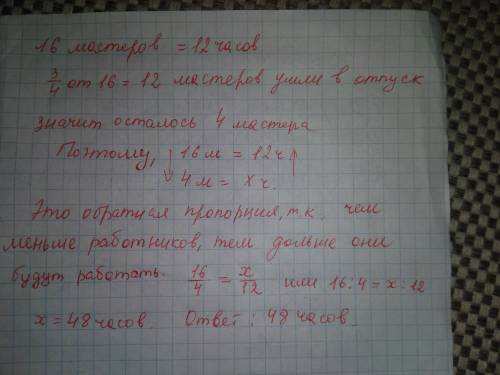 16 мастеров = 12 часов
3/4 от 16 = 12 мастеров ушли в отпуск
значит осталось 4 мастера
Поэтому, ↓ 16 м = 12 ч ↑
4 м = х ч.
Это обратная пропорция, т.к. чем
меньше работников, тем дольше они
будут работать. 16/4 = х/12 или 16:4 = х:12
х = 48 часов. Ответ: 48 часов.